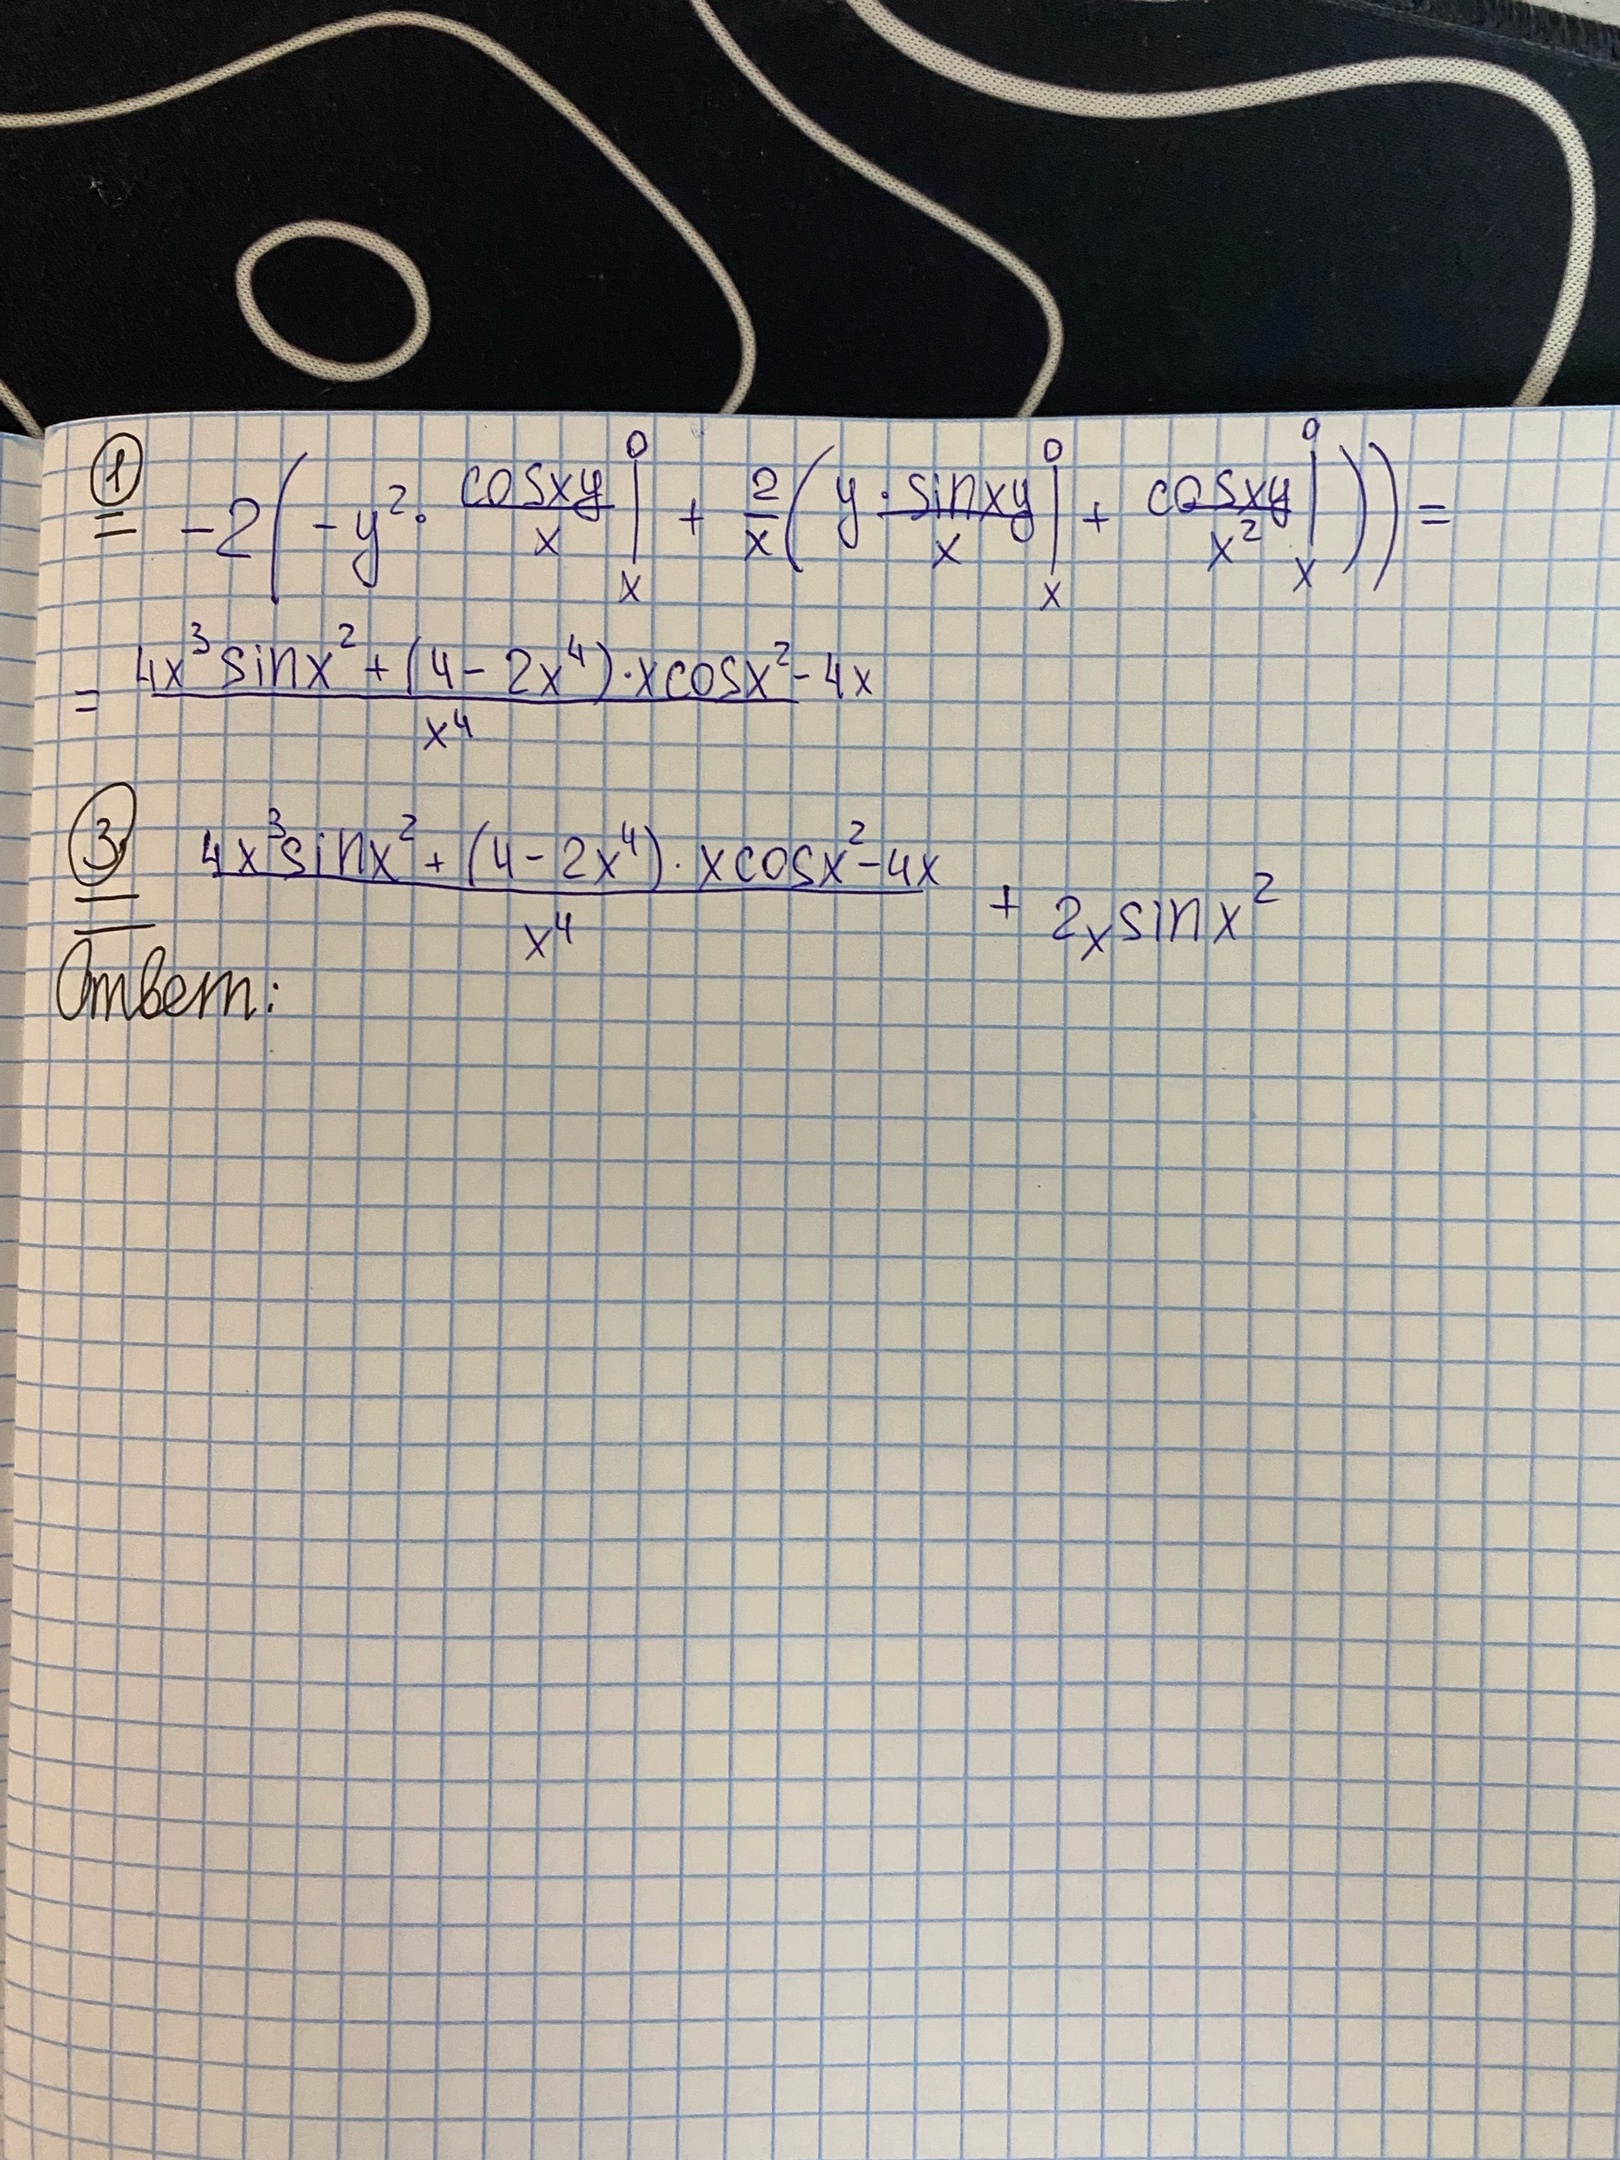 ① = -2(-y²·cosxy/x|₀ₓ + 2/x(y·sinxy/x|⁰ₓ + cosxy/x²|⁰ₓ)) =
= (4x³sinx² + (4-2x⁴)·xcosx² - 4x)/x⁴
③ = (4x³sinx² + (4-2x⁴)·xcosx² - 4x)/x⁴ + 2xsinx²
Ответ: